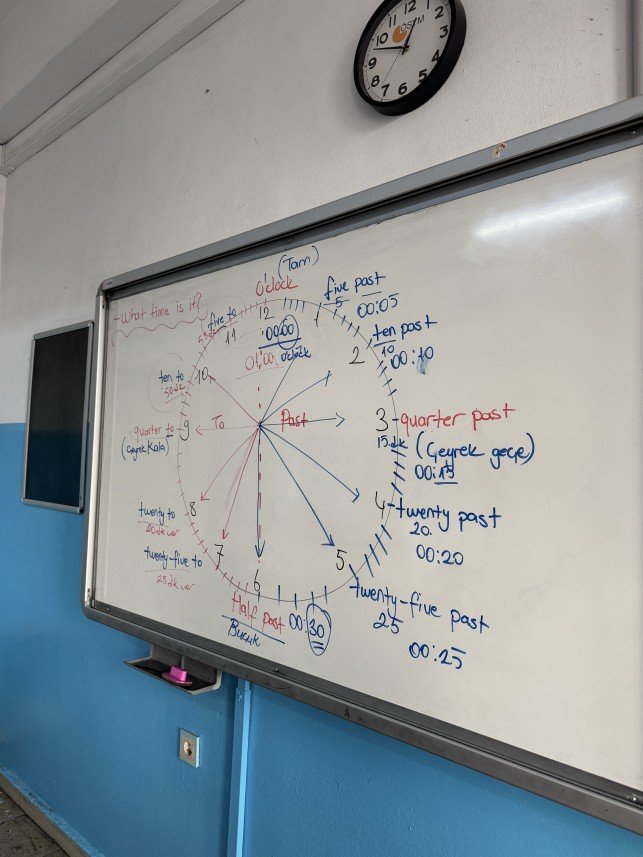 11 12 1
10 2
9 3
8 4
7 6 5
ÖSYM
-What time is it?
(Tam)
O'clock
12
00:00
o'clock
01:00
1
five past
5
00:05
2
ten past
10
00:10
3-quarter past
15.dk (Çeyrek geçe)
00:15
4-twenty past
20.
00:20
5
twenty-five past
25
00:25
6
Half past 00:30
Buçuk
7
twenty-five to
25 dk var
8
twenty to
9
quarter to
(Çeyrek Kala)
10
ten to
11
five to
To
Past